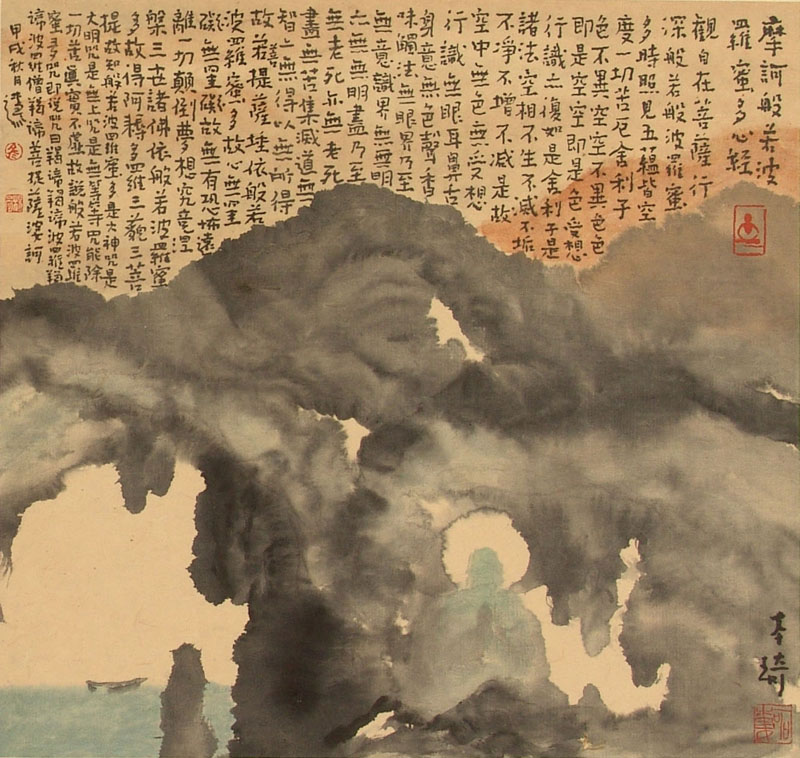 摩訶般若波
羅蜜多心経
觀自在菩薩行
深般若般波羅蜜
多時照見五蘊皆空
度一切苦厄舍利子
色不異空空不異色色
即是空空即是色受想
行識亦復如是舍利子是
諸法空相不生不滅不垢
不淨不增不減是故
空中無色無受想
行識無眼耳鼻舌
身意無色聲香
味觸法無眼界乃至
無意識界無無明
亦無無明盡乃至
無老死亦無老死
盡無苦集滅道無
智亦無得以無所得
故若提薩埵依般若
波羅蜜多故心無罣
礙無罣礙故無有恐怖遠
離一切顛倒夢想究竟涅
槃三世諸佛依般若波羅蜜
多故得阿耨多羅三藐三菩
提故知般若波羅蜜多是大神咒是
大明咒是無上咒是無等等咒能除
一切苦真實不虛故說般若波羅
蜜多咒即說咒曰羯諦羯諦波羅羯
諦波羅僧羯諦菩提薩婆訶
甲戌秋月
本琦